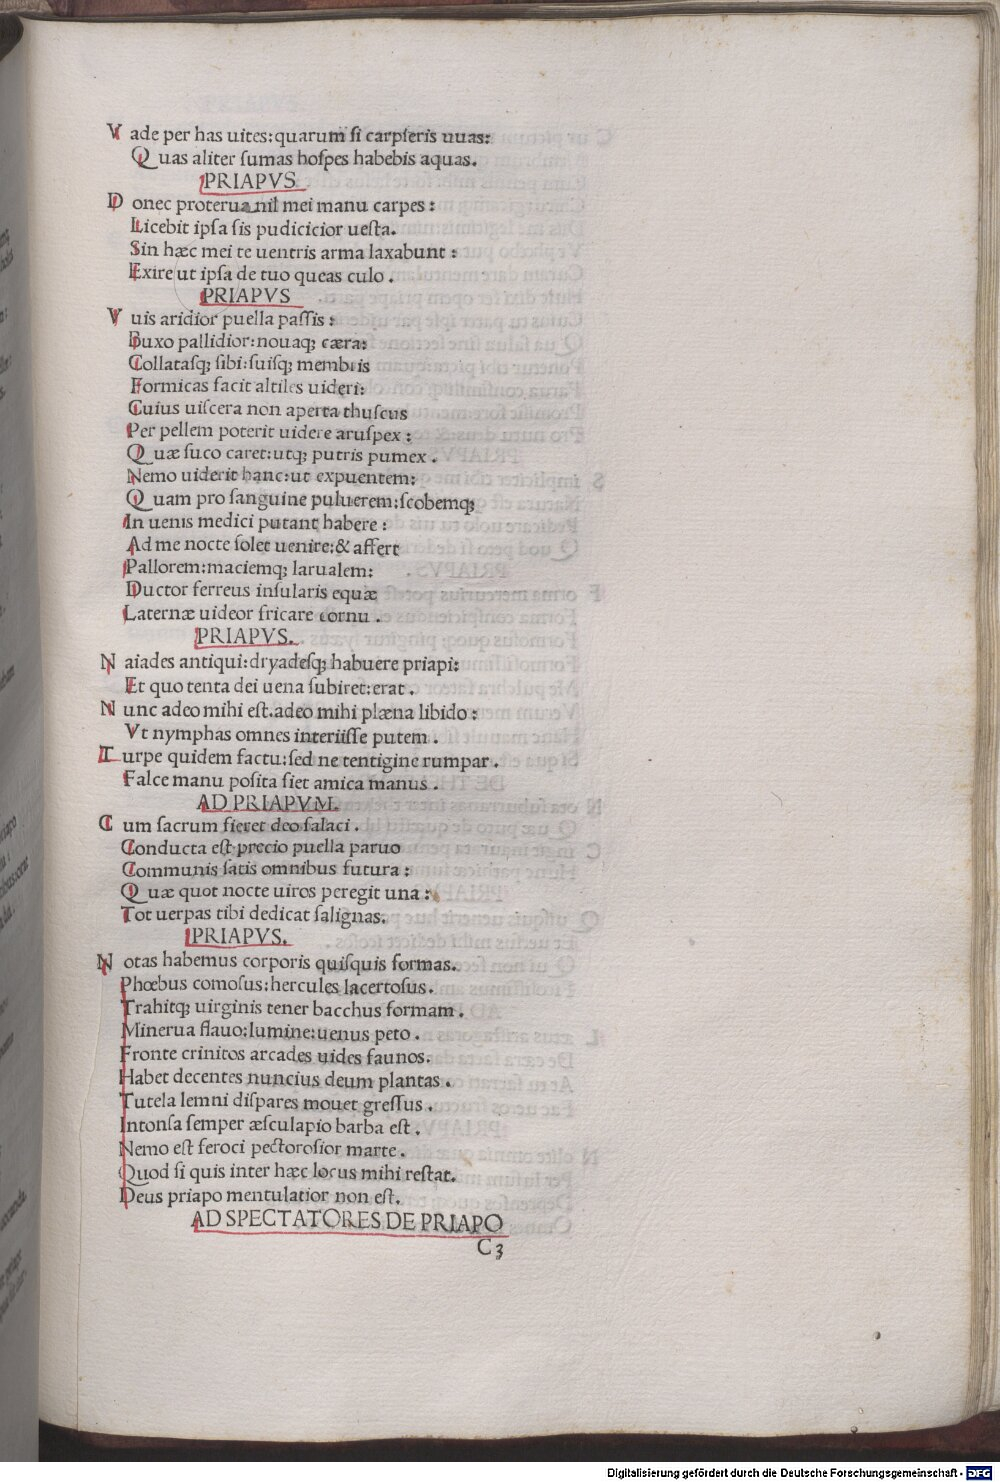 Vade per has uites: quarum si carpseris uuas:
Quas aliter sumas hospes habebis aquas.
PRIAPVS
Donec proterua nil mei manu carpes:
Licebit ipsa sis pudicicior uesta.
Sin hæc mei te uentris arma laxabunt:
Exire ut ipsa de tuo queas culo.
PRIAPVS
Vuis aridior puella passis:
Buxo pallidior: nouaq; cæra:
Collatasq; sibi: suisq; membris
Formicas facit altiles uideri:
Cuius uiscera non aperta thuscus
Per pellem poterit uidere aruspex:
Quæ suco caret: utq; putris pumex.
Nemo uiderit hanc: ut expuentem:
Quam pro sanguine puluerem: scobemq;
In uenis medici putant habere:
Ad me nocte solet uenire: & affert
Pallorem: maciemq; larualem:
Ductor ferreus insularis equæ
Laternæ uideor fricare cornu.
PRIAPVS.
Naiades antiqui: dryadesq; habuere priapi:
Et quo tenta dei uena subiret: erat.
Nunc adeo mihi est. adeo mihi plæna libido:
Vt nymphas omnes interiisse putem.
Turpe quidem factu: sed ne tentigine rumpar.
Falce manu posita fiet amica manus.
AD PRIAPVM.
Cum sacrum fieret deo salaci.
Conducta est precio puella paruo
Communis satis omnibus futura:
Quæ quot nocte uiros peregit una:
Tot uerpas tibi dedicat salignas.
PRIAPVS.
Notas habemus corporis quisquis formas.
Phœbus comosus: hercules lacertosus.
Trahitq; uirginis tener bacchus formam.
Minerua flauo: lumine: uenus peto.
Fronte crinitos arcades uides faunos.
Habet decentes nuncius deum plantas.
Tutela lemni dispares mouet gressus.
Intonsa semper æsculapio barba est.
Nemo est feroci pectorosior marte.
Quod si quis inter hæc locus mihi restat.
Deus priapo mentulatior non est.
AD SPECTATORES DE PRIAPO
C3
Digitalisierung gefördert durch die Deutsche Forschungsgemeinschaft - DFG